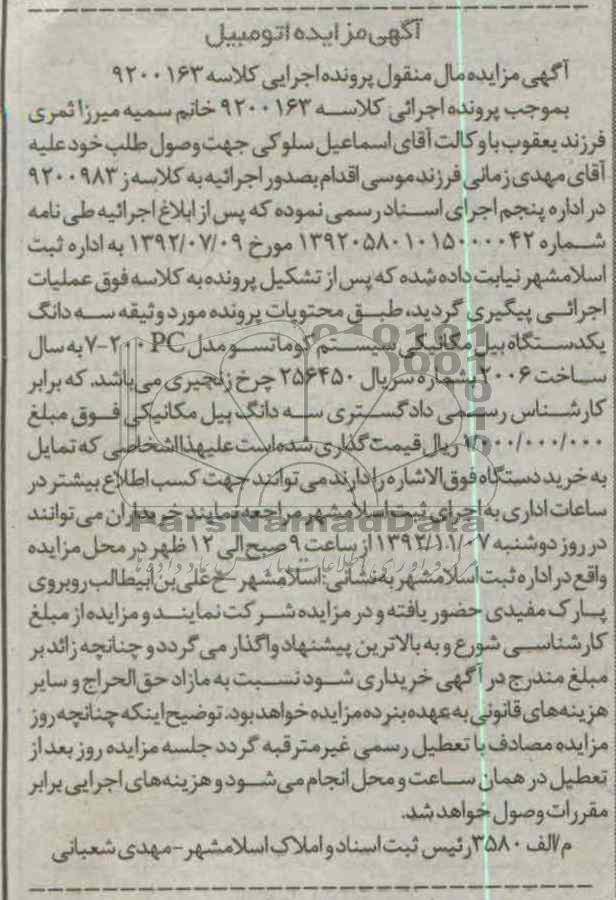 آگهی مزایده اتومبیل
آگهی مزایده مال منقول پرونده اجرایی کلاسه ۹۲۰۰۱۶۳
بموجب پرونده اجرائی کلاسه ۹۲۰۰۱۶۳ خانم سمیه میرزا ثمری
فرزند یعقوب باوکالت آقای اسماعیل سلوکی جهت وصول طلب خود علیه
آقای مهدی زمانی فرزند موسی اقدام بصدور اجرائیه به کلاسه ز ۹۲۰۰۹۸۳
در اداره پنجم اجرای اسناد رسمی نموده که پس از ابلاغ اجرائیه طی نامه
شماره ۱۳۹۲۰۵۸۰۱۰۱۵۰۰۰۰۴۲ مورخ ۱۳۹۲/۰۷/۰۹ به اداره ثبت
اسلامشهر نیابت داده شده که پس از تشکیل پرونده به کلاسه فوق عملیات
اجرائی پیگیری گردید، طبق محتویات پرونده مورد وثیقه سه دانگ
یکدستگاه بیل مکانیکی سیستم کوماتسو مدل PC ۲۰۰-۷ به سال
ساخت ۲۰۰۶ بشماره سریال ۲۵۶۴۵۰ چرخ زنجیری می باشد. که برابر
کارشناس رسمی دادگستری سه دانگ بیل مکانیکی فوق مبلغ
ریال قیمت گذاری شده است علیهذا اشخاصی که تمایل
به خرید دستگاه فوق الاشاره را دارند می توانند جهت کسب اطلاع بیشتر در
ساعات اداری به اجرای ثبت اسلامشهر مراجعه نمایند خریداران می توانند
در روز دوشنبه ۱۳۹۲/۱۱/۰۷ از ساعت ۹ صبح الی ۱۲ ظهر در محل مزایده
واقع در اداره ثبت اسلامشهر به نشانی: اسلامشهر خ علی بن ابیطالب روبروی
پارک مفیدی حضور یافته و در مزایده شرکت نمایند و مزایده از مبلغ
کارشناسی شورع و به بالاترین پیشنهاد واگذار می گردد و چنانچه زائد بر
مبلغ مندرج در آگهی خریداری شود نسبت به مازاد حق الحراج و سایر
هزینه های قانونی به عهده بنرده مزایده خواهد بود. توضیح اینکه چنانچه روز
مزایده مصادف با تعطیل رسمی غیرمترقبه گردد جلسه مزایده روز بعد از
تعطیل در همان ساعت و محل انجام می شود و هزینه های اجرایی برابر
مقررات وصول خواهد شد.
م/الف ۳۵۸۰ رئیس ثبت اسناد و املاک اسلامشهر - مهدی شعبانی
ParsNamadData